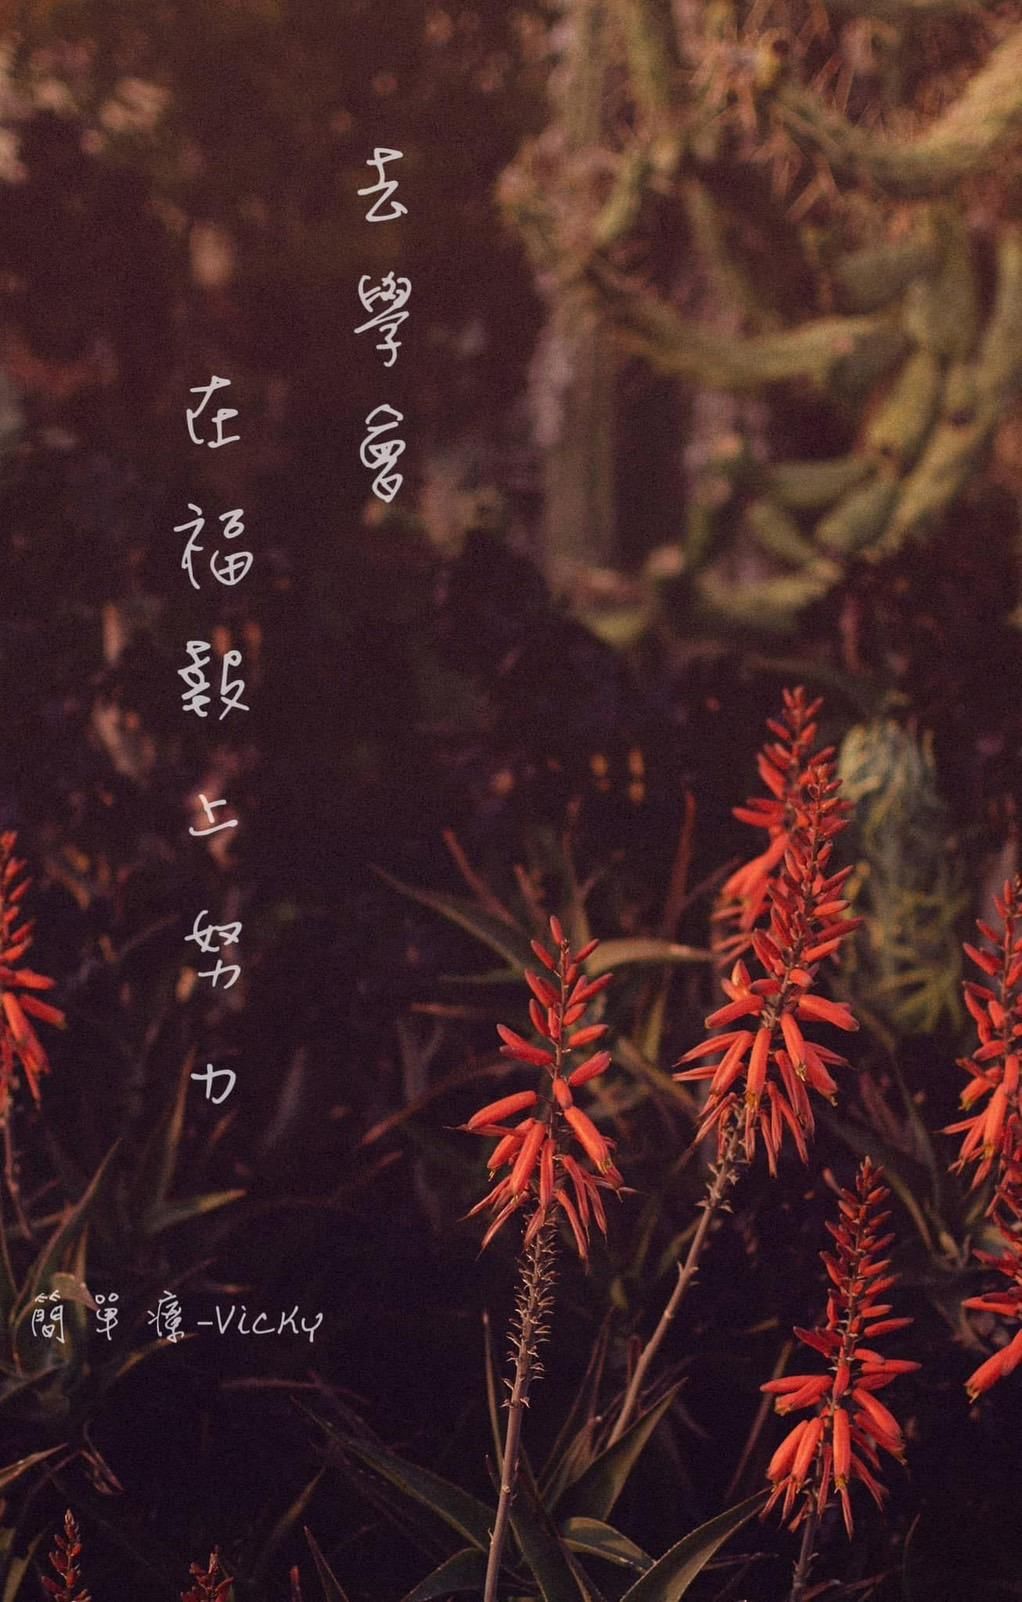 去學會
在福報上努力
簡單療-Vicky